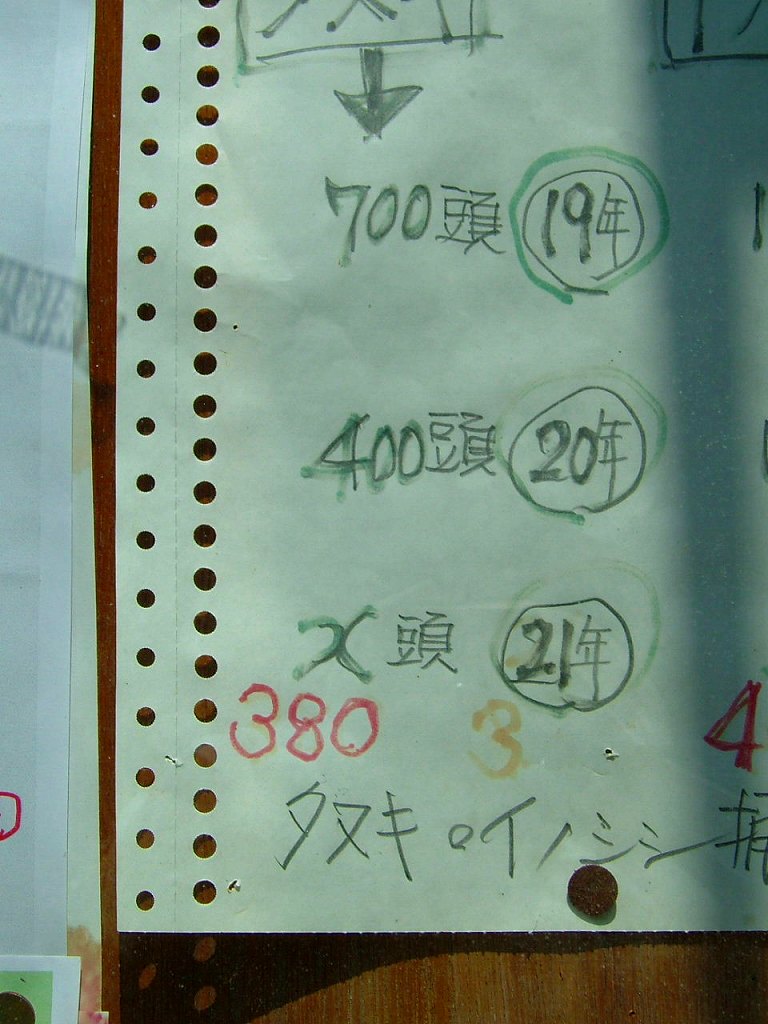 700頭 19年
400頭 20年
x頭 21年
380 3 4
タヌキ。イノシシ捕